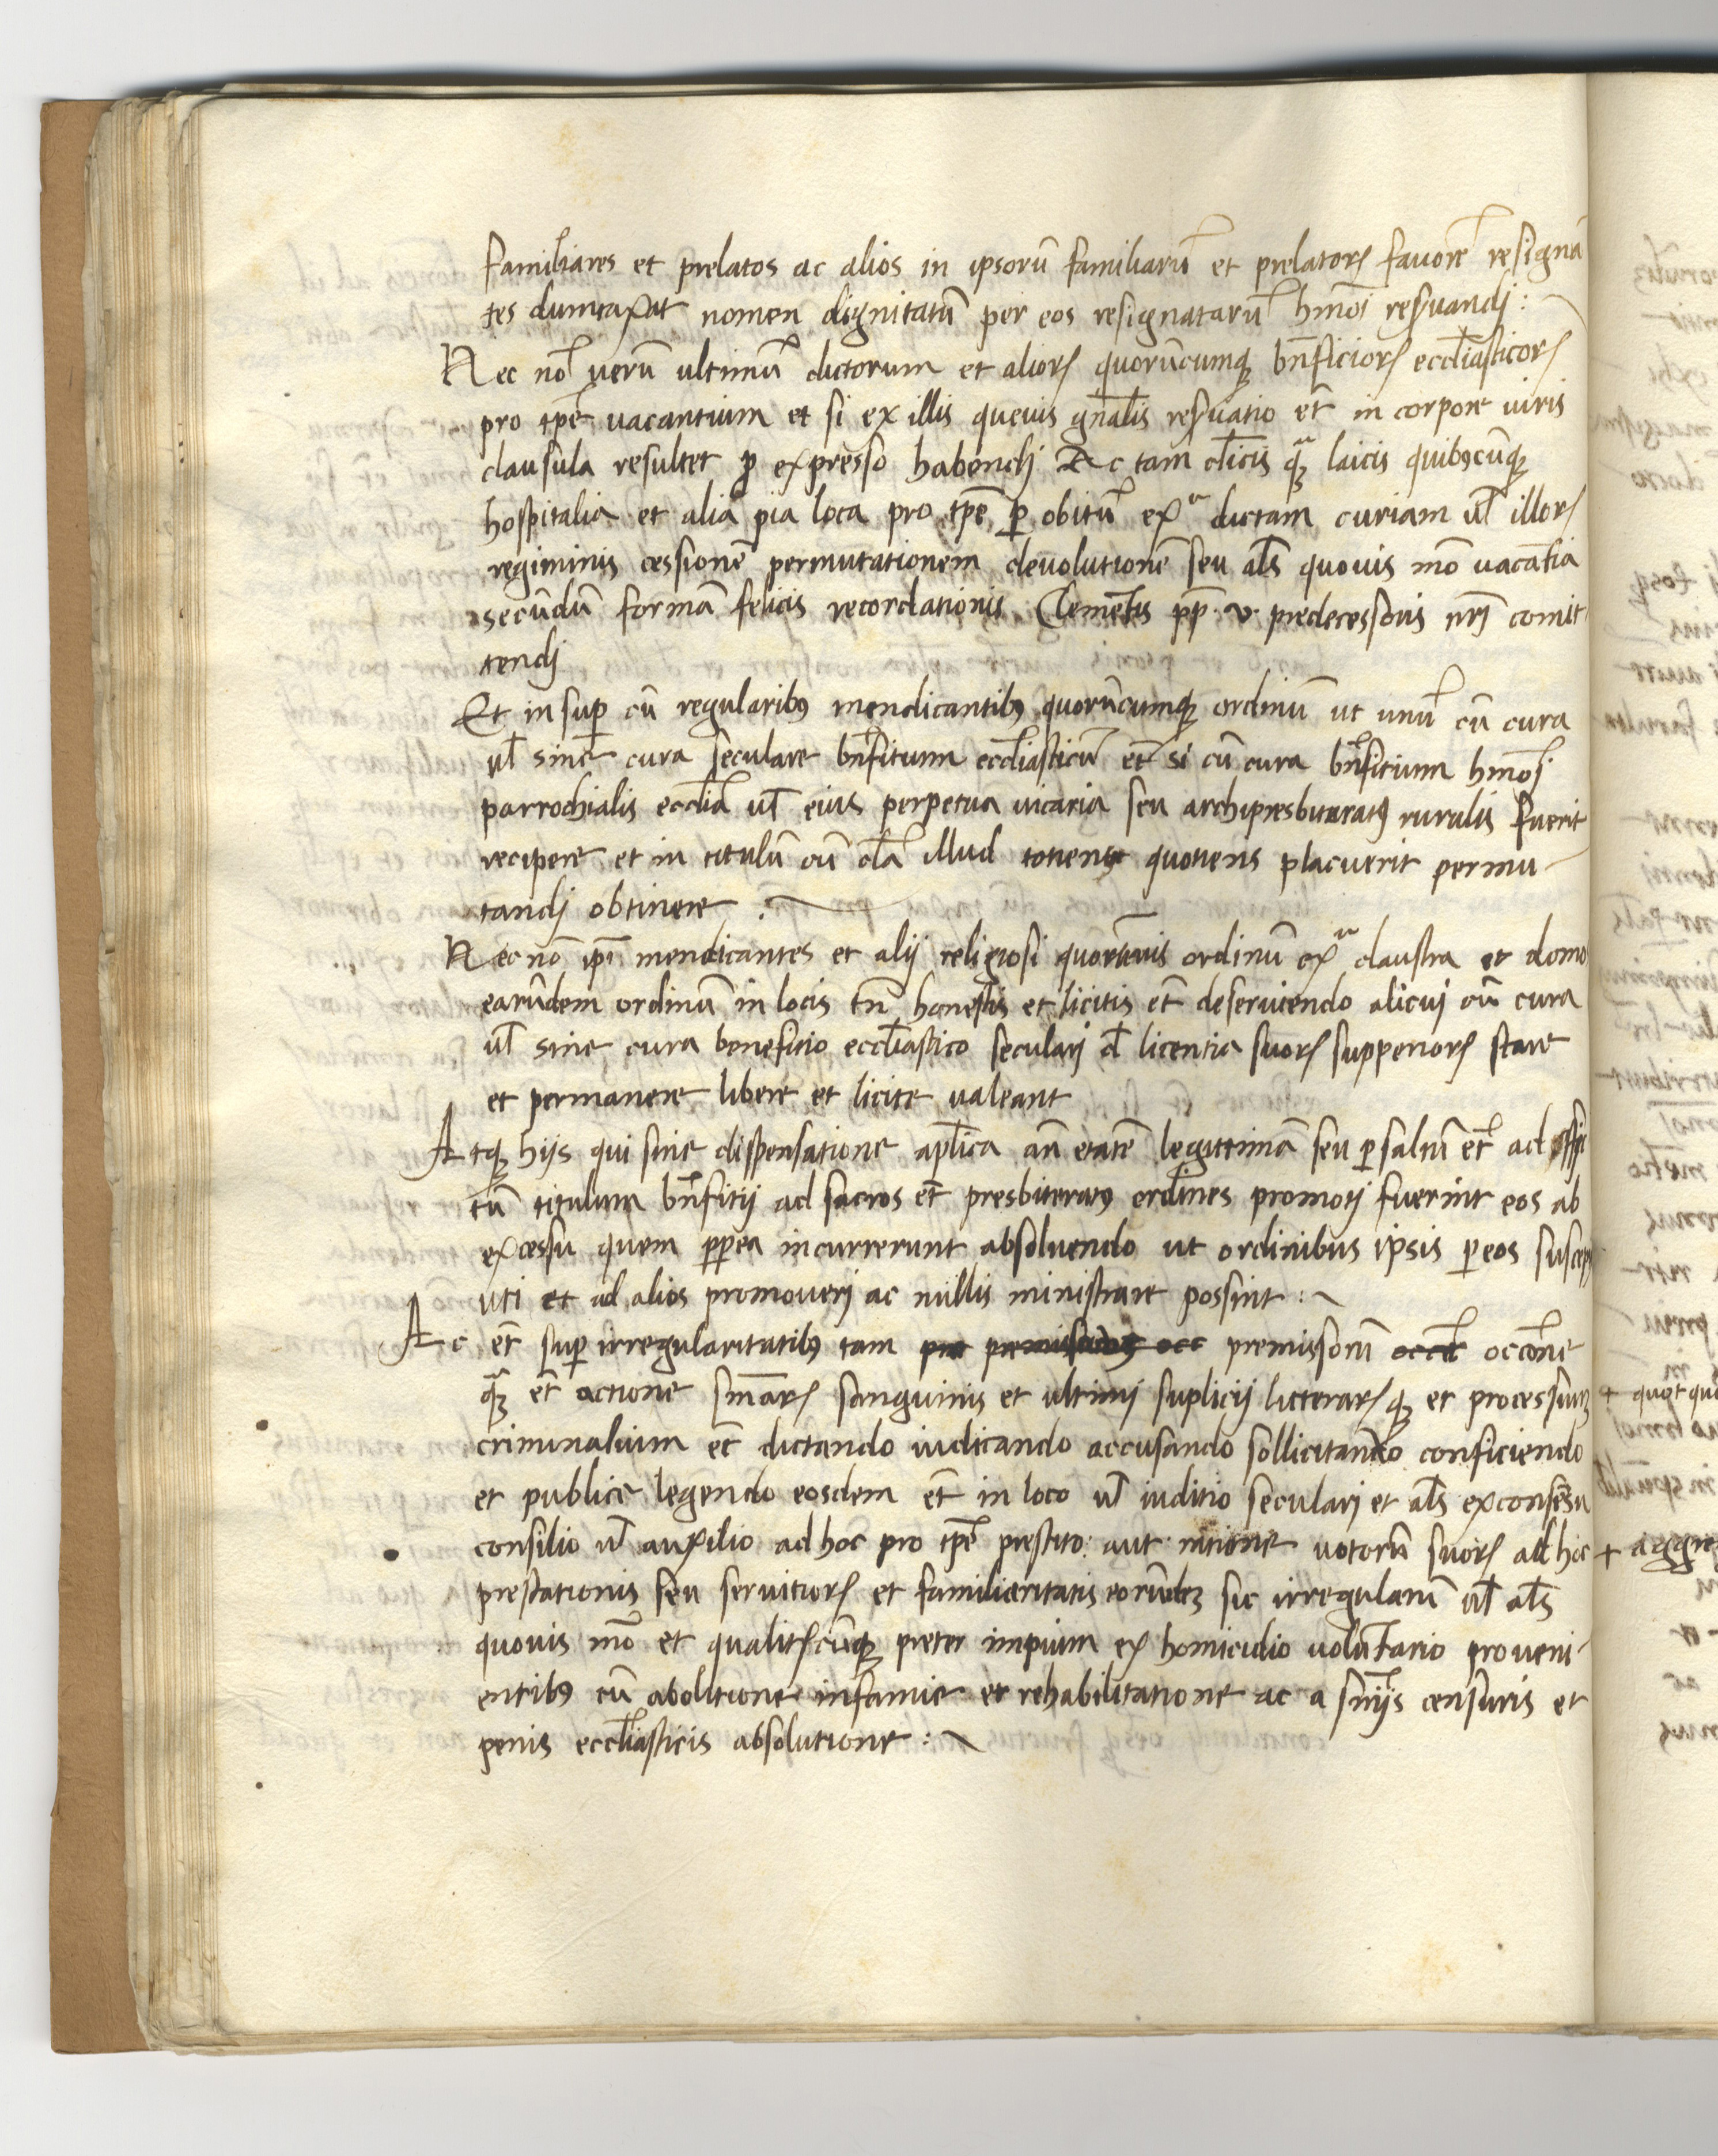 familiares et prelatos ac alios in ipsorū familiarū et prelatoꝝ fauorē resignā
tes dumtaxat nomen dignitatū per eos resignatarū hmōi reseruandj :
Nec nō uerū ultimū dictorum et alioꝝ quorūcumqꝫ bn̄ficioꝝ eccliāsticoꝝ
pro tpē uacantium et si ex illis queuis gn̄alis reseruatio et̄ in corpore iuris
clausula resultet ꝓ expresso habendj Ac tam cl̄icis qꝫ laicis quibꝰcūqꝫ
hospitalia et alia pia loca pro tpē ꝑ obitū exᵃ dictam curiam ul̄ illoꝝ
regiminis cessionē permutationem deuolutionē seu al̄s quouis mō uacātia
secūdū formā felicis recordationis Clemētis pp̄ v predecessoris nr̄j comit
tendj
Et insuꝑ cū regularibꝰ mendicantibꝰ quorūcumqꝫ ordinū ut unū cū cura
ul̄ sine cura seculare bn̄fitium eccliāsticū et̄ si cū cura bn̄fitium hmōj
parrochialis eccliā ul̄ eius perpetua uicaria seu archipresbiteratꝰ ruralis fuerit
recipere et in titulū cū cl̄a illud totiens quotiens placuerit permu-
tandj obtinere :
Nec nō ip̄i mendicantes et alij religiosi quorūuis ordinū exᵃ claustra et domo
earūdem ordinū in locis tn̄ honestis et licitis et̄ deseruiendo alicui cū cura
ul̄ sine cura beneficio eccliāstico secularj d̄ licentia suoꝝ supperioꝝ stare
et permanere libere et licite ualeant
Atqꝫ hijs qui sine dispensatione aplīca an̄ etatē legittimā seu ꝑ saltū et̄ ad
tū titulum bn̄fitij ad sacros et̄ presbiteratꝰ ordines promotj fuerint eos ab
excessu quem ꝓpterea incurrerunt absoluendo ut ordinibus ipsis ꝑ eos suscep
uti et ad alios promouerj ac in illis ministrare possint :
Ac et̄ suꝑ irregularitatibꝰ tam premissorū occōne
qꝫ et̄ actione sn̄iaꝝ sanguinis et ultimj suplicij licteraꝝqꝫ et processuū
criminalium et̄ dictando iudicando accusando sollicitando conficiendo
et publice legendo eosdem et̄ in loco ul̄ iuditio secularj et al̄s ex consēsu
consilio ul̄ auxilio ad hoc pro tpē prestito aut ratione uotorū suoꝝ ad hoc
prestationis seu seruitioꝝ et familiaritatis eorūdeꝫ sic irregulariū ul̄ al̄s
quouis mō et qualitꝰcūqꝫ preter impium ex homicidio uolūtario proueni-
entibꝰ cū abolitione infamie et rehabilitatione ac a sn̄ijs censuris et
penis eccliāsticis absolutione :
+ quot
+ aggre